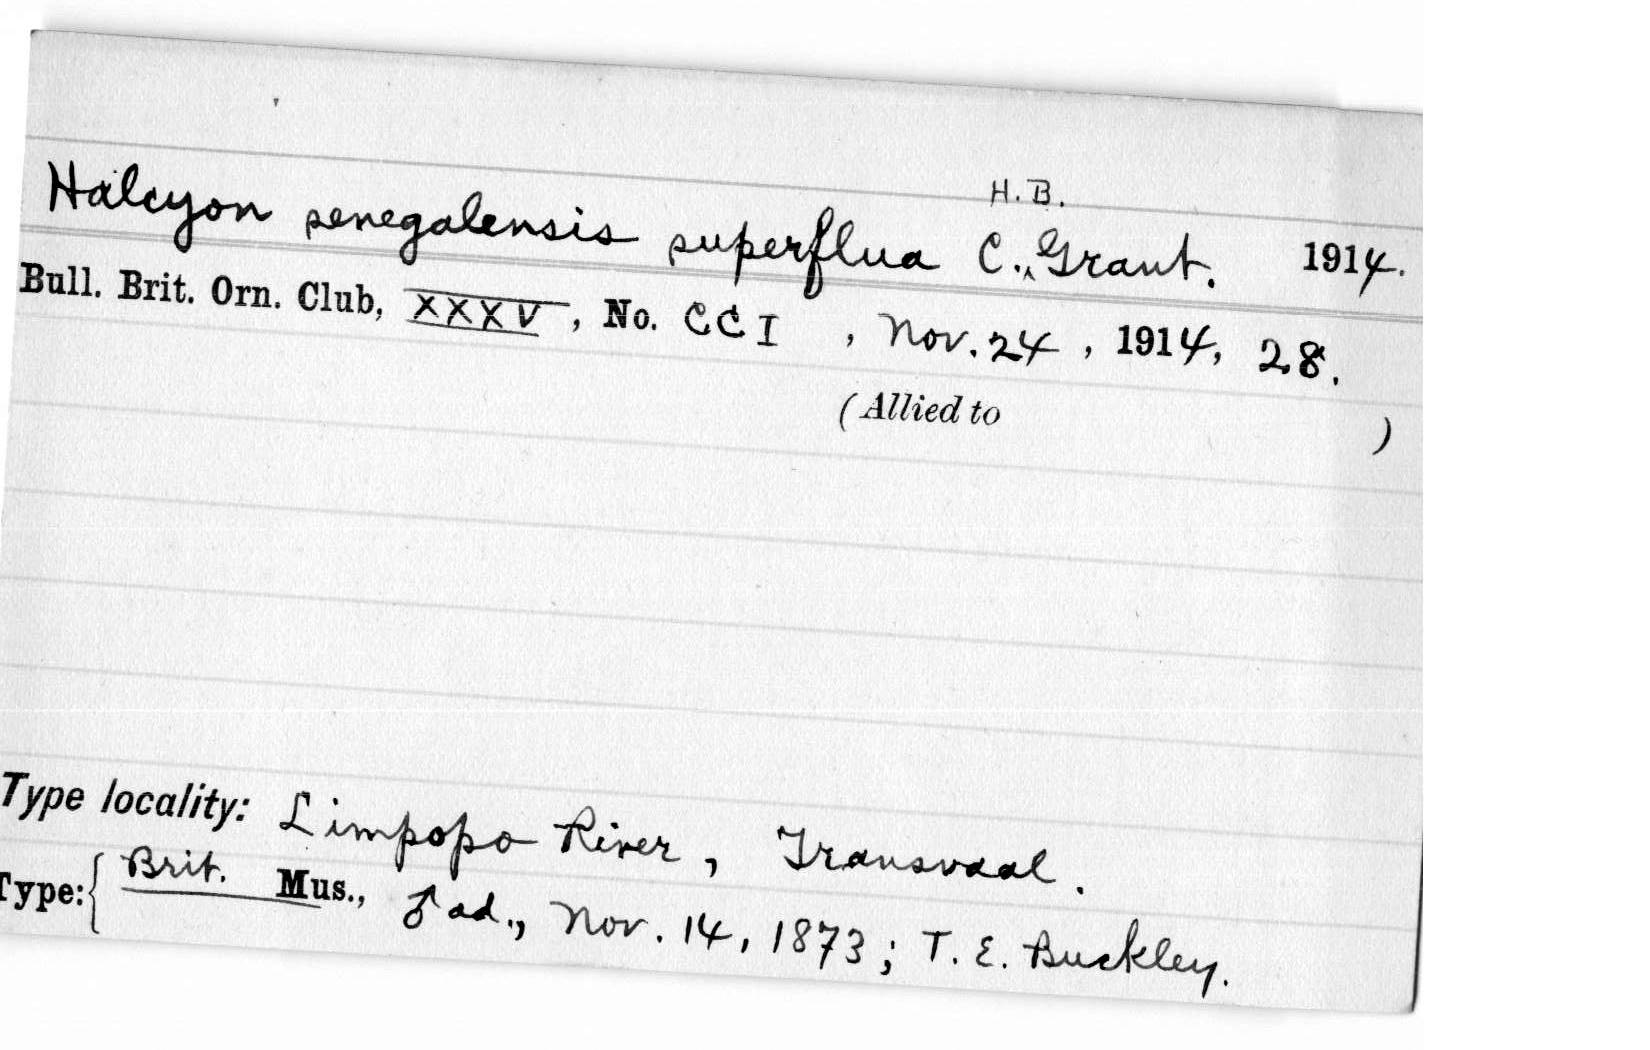 H.B.
Halcyon senegalensis superflua C.‸Grant. 1914.
Bull. Brit. Orn. Club, XXXV, No. CCI, Nov. 24, 1914, 28.
(Allied to )
Type locality: Limpopo River, Transvaal.
Type: { Brit. Mus., ♂ ad., Nov. 14, 1873; T. E. Buckley.